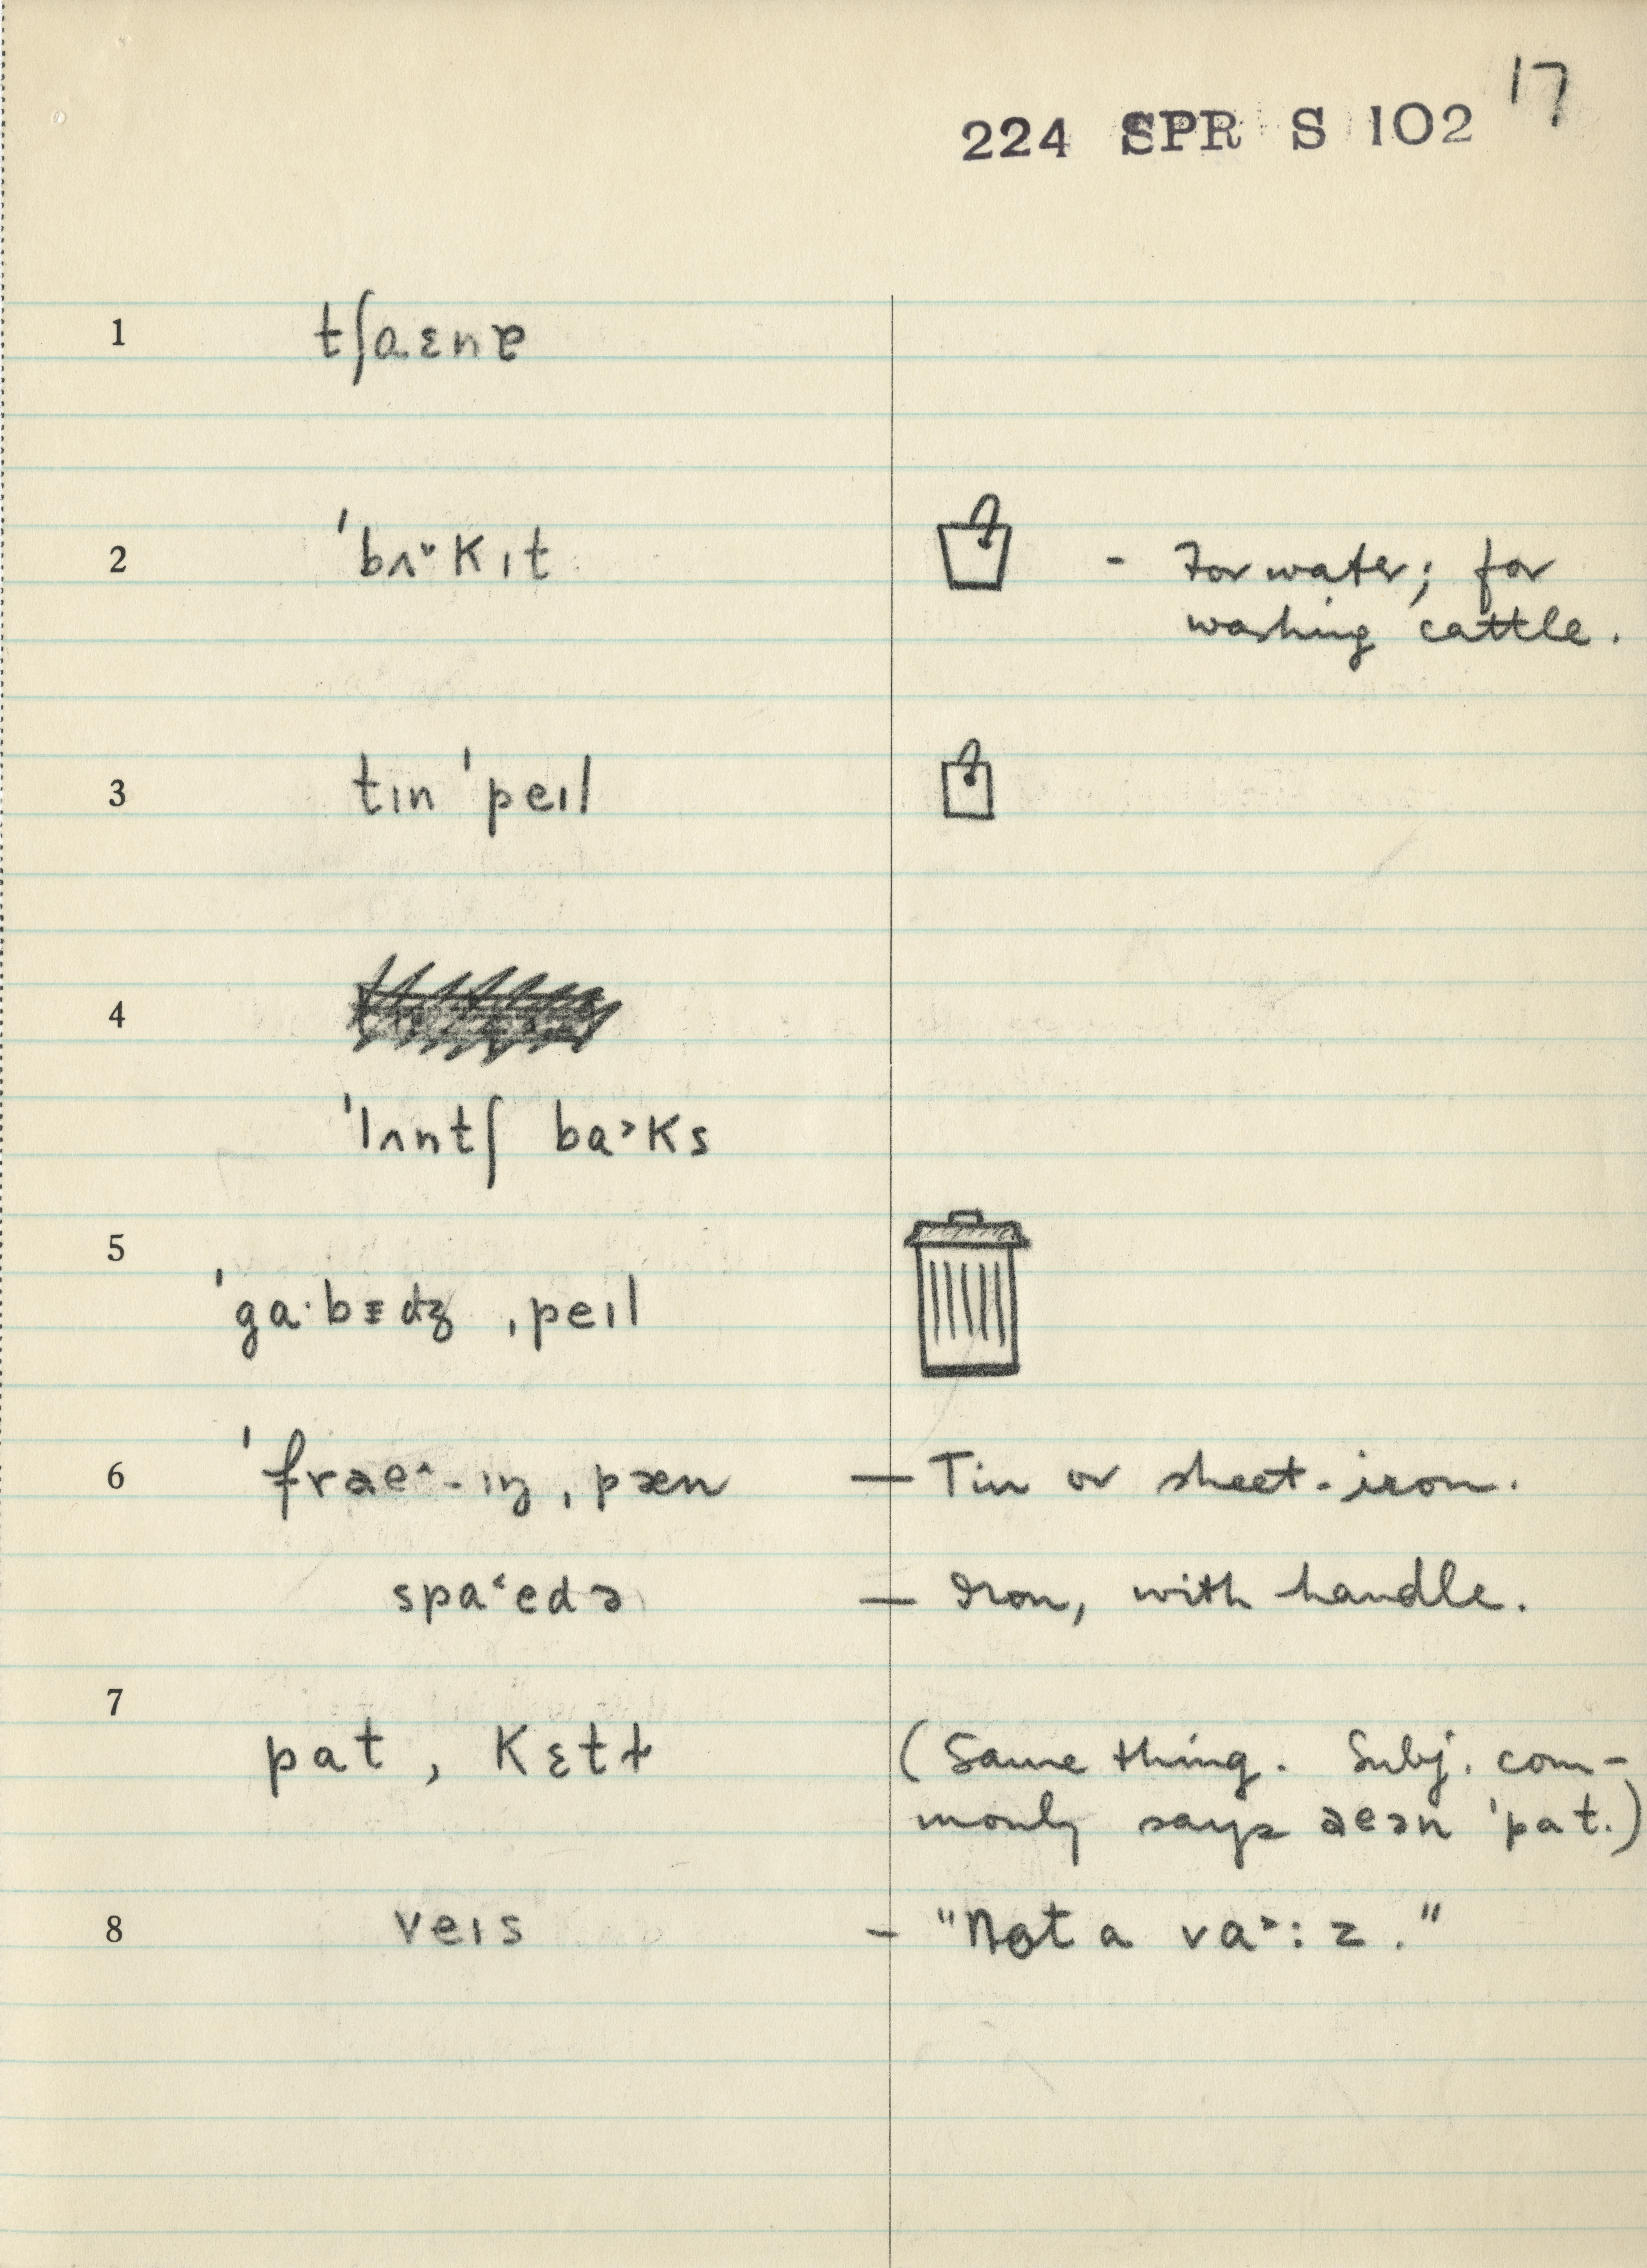 17
224 SPR S 102
1 tʃaɛnɐ
2 ˈbʌ˅kɪt - For water; for
washing cattle.
3 tɪn ˈpeɪl
4
ˈlʌntʃ ba˃ks
5
ˈga·bɪdʒ ˌpeɪl
6 ˈfraeˆ-ɪŋ ˌpæn — Tin or sheet-iron.
spa˂edə — Iron, with handle.
7
pat , kɛtɫ (Same thing. Subj. com-
monly says aeən ˈpat.)
8 veɪs - "Not a va˃:z."